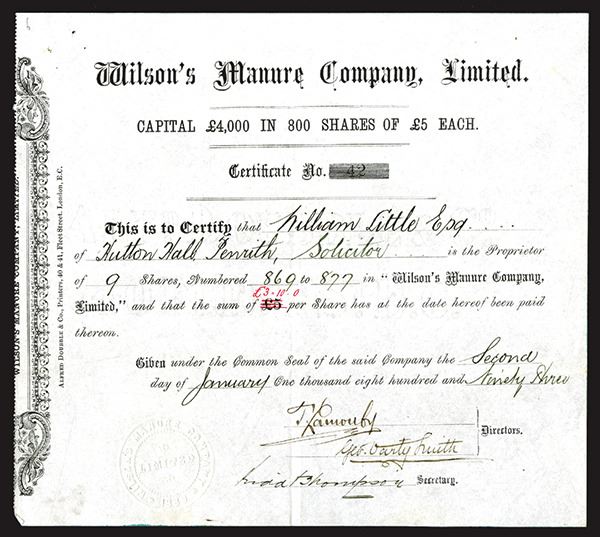 Wilson's Manure Company, Limited.
CAPITAL £4,000 IN 800 SHARES OF £5 EACH.
Certificate No. 42
This is to Certify that William Little Esq
of Hutton Hall Penrith, Solicitor is the Proprietor
of 9 Shares, Numbered 869 to 877 in "Wilson's Manure Company,
£3-10-0
Limited," and that the sum of £5 per Share has at the date hereof been paid
thereon.
Given under the Common Seal of the said Company the Second
day of January One thousand eight hundred and Ninety Three
Directors.
Geo. Varty Smith
Thompson Secretary.
ALFRED DOUBBLE & Co., Printers, 40 & 41, Fleet Street, London, E.C.
WILSON'S MANURE COMPANY, LIMITED.